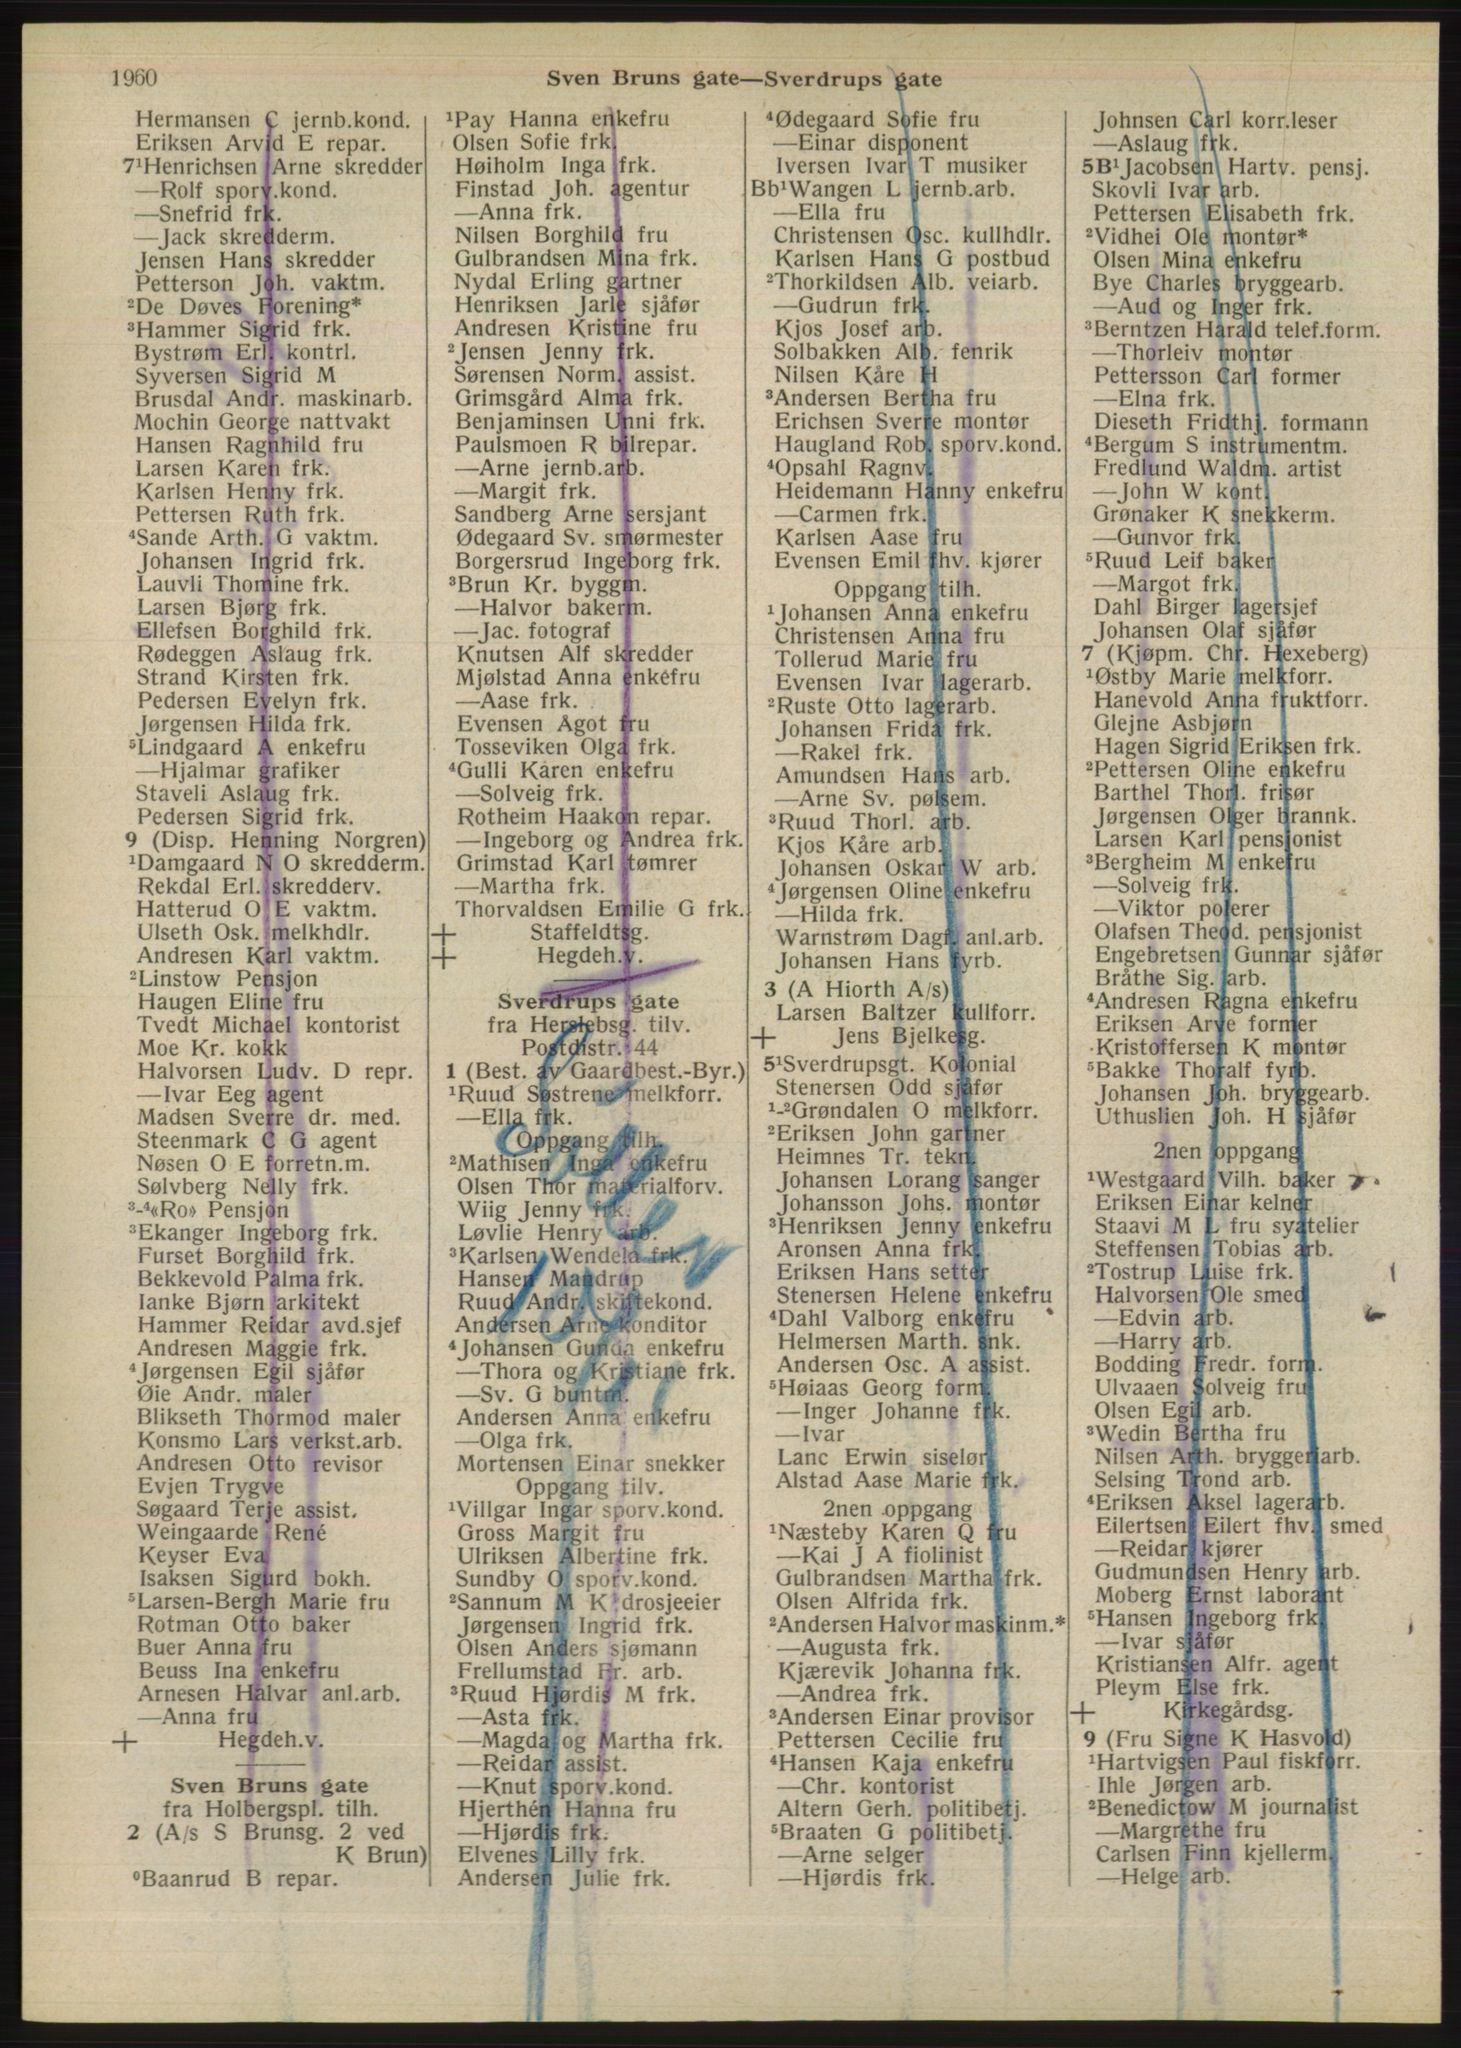 1960
Sven Bruns gate—Sverdrups gate
Hermansen C jernb.kond.
Eriksen Arvid E repar.
7¹Henrichsen Arne skredder
—Rolf sporv.kond.
—Snefrid frk.
—Jack skredderm.
Jensen Hans skredder
Petterson Joh. vaktm.
²De Døves Forening*
³Hammer Sigrid frk.
Bystrøm Erl. kontrl.
Syversen Sigrid M
Brusdal Andr. maskinarb.
Mochin George nattvakt
Hansen Ragnhild fru
Larsen Karen frk.
Karlsen Henny frk.
Pettersen Ruth frk.
⁴Sande Arth. G vaktm.
Johansen Ingrid frk.
Lauvli Thomine frk.
Larsen Bjørg frk.
Ellefsen Borghild frk.
Rødeggen Aslaug frk.
Strand Kirsten frk.
Pedersen Evelyn frk.
Jørgensen Hilda frk.
⁵Lindgaard A enkefru
—Hjalmar grafiker
Staveli Aslaug frk.
Pedersen Sigrid frk.
9 (Disp. Henning Norgren)
¹Damgaard N O skredderm.
Rekdal Erl. skredderv.
Hatterud O E vaktm.
Ulseth Osk. melkhdlr.
Andresen Karl vaktm.
²Linstow Pensjon
Haugen Eline fru
Tvedt Michael kontorist
Moe Kr. kokk
Halvorsen Ludv. D repr.
—Ivar Eeg agent
Madsen Sverre dr. med.
Steenmark C G agent
Nøsen O E forretn.m.
Sølvberg Nelly frk.
³-⁴«Ro» Pensjon
³Ekanger Ingeborg frk.
Furset Borghild frk.
Bekkevold Palma frk.
Ianke Bjørn arkitekt
Hammer Reidar avd.sjef
Andresen Maggie frk.
⁴Jørgensen Egil sjåfør
Øie Andr. maler
Blikseth Thormod maler
Konsmo Lars verkst.arb.
Andresen Otto revisor
Evjen Trygve
Søgaard Terje assist.
Weingaarde René
Keyser Eva
Isaksen Sigurd bokh.
⁵Larsen-Bergh Marie fru
Rotman Otto baker
Buer Anna fru
Beuss Ina enkefru
Arnesen Halvar anl.arb.
—Anna fru
+ Hegdeh.v.
Sven Bruns gate
fra Holbergspl. tilh.
2 (A/s S Brunsg. 2 ved
K Brun)
⁰Baanrud B repar.
¹Pay Hanna enkefru
Olsen Sofie frk.
Høiholm Inga frk.
Finstad Joh. agentur
—Anna frk.
Nilsen Borghild fru
Gulbrandsen Mina frk.
Nydal Erling gartner
Henriksen Jarle sjåfør
Andresen Kristine fru
²Jensen Jenny frk.
Sørensen Norm. assist.
Grimsgård Alma frk.
Benjaminsen Unni frk.
Paulsmoen R bilrepar.
—Arne jernb.arb.
—Margit frk.
Sandberg Arne sersjant
Ødegaard Sv. smørmester
Borgersrud Ingeborg frk.
³Brun Kr. byggm.
—Halvor bakerm.
—Jac. fotograf
Knutsen Alf skredder
Mjølstad Anna enkefru
—Aase frk.
Evensen Ågot fru
Tosseviken Olga frk.
⁴Gulli Karen enkefru
—Solveig frk.
Rotheim Haakon repar.
—Ingeborg og Andrea frk.
Grimstad Karl tømrer
—Martha frk.
Thorvaldsen Emilie G frk.
+ Staffeldtsg.
+ Hegdeh.v.
Sverdrups gate
fra Herslebsg. tilv.
Postdistr. 44
1 (Best. av Gaardbest.-Byr.)
¹Ruud Søstrene melkforr.
—Ella frk.
Oppgang tilh.
²Mathisen Inga enkefru
Olsen Thor materialforv.
Wiig Jenny frk.
Løvlie Henry arb.
³Karlsen Wendela frk.
Hansen Mandrup
Ruud Andr. skiftekond.
Andersen Arne konditor
⁴Johansen Gunda enkefru
—Thora og Kristiane frk.
—Sv. G buntm.
Andersen Anna enkefru
—Olga frk.
Mortensen Einar snekker
Oppgang tilv.
¹Villgar Ingar sporv.kond.
Gross Margit fru
Ulriksen Albertine frk.
Sundby O sporv.kond.
²Sannum M K drosjeeier
Jørgensen Ingrid frk.
Olsen Anders sjømann
Frellumstad Fr. arb.
³Ruud Hjørdis M frk.
—Asta frk.
—Magda og Martha frk.
—Reidar assist.
—Knut sporv.kond.
Hjerthén Hanna fru
—Hjørdis frk.
Elvenes Lilly frk.
Andersen Julie frk.
⁴Ødegaard Sofie fru
—Einar disponent
Iversen Ivar T musiker
Bb¹Wangen L jernb.arb.
—Ella fru
Christensen Osc. kullhdlr.
Karlsen Hans G postbud
²Thorkildsen Alb. veiarb.
—Gudrun frk.
Kjos Josef arb.
Solbakken Alb. fenrik
Nilsen Kåre H
³Andersen Bertha fru
Erichsen Sverre montør
Haugland Rob. sporv.kond.
⁴Opsahl Ragnv.
Heidemann Hanny enkefru
—Carmen frk.
Karlsen Aase fru
Evensen Emil fhv. kjører
Oppgang tilh.
¹Johansen Anna enkefru
Christensen Anna fru
Tollerud Marie fru
Evensen Ivar lagerarb.
²Ruste Otto lagerarb.
Johansen Frida frk.
—Rakel frk.
Amundsen Hans arb.
—Arne Sv. pølsem.
³Ruud Thorl. arb.
Kjos Kåre arb.
Johansen Oskar W arb.
⁴Jørgensen Oline enkefru
—Hilda frk.
Warnstrøm Dagf. anl.arb.
Johansen Hans fyrb.
3 (A Hiorth A/s)
Larsen Baltzer kullforr.
+ Jens Bjelkesg.
5¹Sverdrupsgt. Kolonial
Stenersen Odd sjåfør
¹-²Grøndalen O melkforr.
²Eriksen John gartner
Heimnes Tr. tekn.
Johansen Lorang sanger
Johansson Johs. montør
³Henriksen Jenny enkefru
Aronsen Anna frk.
Eriksen Hans setter
Stenersen Helene enkefru
⁴Dahl Valborg enkefru
Helmersen Marth. snk.
Andersen Osc. A assist.
⁵Høiaas Georg form.
—Inger Johanne frk.
—Ivar
Lanc Erwin siselør
Alstad Aase Marie frk.
2nen oppgang
¹Næsteby Karen Q fru
—Kai J A fiolinist
Gulbrandsen Martha frk.
Olsen Alfrida frk.
²Andersen Halvor maskinm.*
—Augusta frk.
Kjærevik Johanna frk.
—Andrea frk.
³Andersen Einar provisor
Pettersen Cecilie fru
⁴Hansen Kaja enkefru
—Chr. kontorist
Altern Gerh. politibetj.
⁵Braaten G politibetj.
—Arne selger
—Hjørdis frk.
Johnsen Carl korr.leser
—Aslaug frk.
5B¹Jacobsen Hartv. pensj.
Skovli Ivar arb.
Pettersen Elisabeth frk.
²Vidhei Ole montør*
Olsen Mina enkefru
Bye Charles bryggearb.
—Aud og Inger frk.
³Berntzen Harald telef.form.
—Thorleiv montør
Pettersson Carl former
—Elna frk.
Dieseth Fridthj. formann
⁴Bergum S instrumentm.
Fredlund Waldm. artist
—John W kont.
Grønaker K snekkerm.
—Gunvor frk.
⁵Ruud Leif baker
—Margot frk.
Dahl Birger lagersjef
Johansen Olaf sjåfør
7 (Kjøpm. Chr. Hexeberg)
¹Østby Marie melkforr.
Hanevold Anna fruktforr.
Glejne Asbjørn
Hagen Sigrid Eriksen frk.
²Pettersen Oline enkefru
Barthel Thorl. frisør
Jørgensen Olger brannk.
Larsen Karl pensjonist
³Bergheim M enkefru
—Solveig frk.
—Viktor polerer
Olafsen Theod. pensjonist
Engebretsen Gunnar sjåfør
Bråthe Sig. arb.
⁴Andresen Ragna enkefru
Eriksen Arve former
Kristoffersen K montør
⁵Bakke Thoralf fyrb.
Johansen Joh. bryggearb.
Uthuslien Joh. H sjåfør
2nen oppgang
¹Westgaard Vilh. baker
Eriksen Einar kelner
Staavi M L fru syatelier
Steffensen Tobias arb.
²Tostrup Luise frk.
Halvorsen Ole smed
—Edvin arb.
—Harry arb.
Bodding Fredr. form.
Ulvaaen Solveig fru
Olsen Egil arb.
³Wedin Bertha fru
Nilsen Arth. bryggeriarb.
Selsing Trond arb.
⁴Eriksen Aksel lagerarb.
Eilertsen Eilert fhv. smed
—Reidar kjører
Gudmundsen Henry arb.
Moberg Ernst laborant
⁵Hansen Ingeborg frk.
—Ivar sjåfør
Kristiansen Alfr. agent
Pleym Else frk.
+ Kirkegårdsg.
9 (Fru Signe K Hasvold)
¹Hartvigsen Paul fiskforr.
Ihle Jørgen arb.
²Benedictow M journalist
—Margrethe fru
Carlsen Finn kjellerm.
—Helge arb.